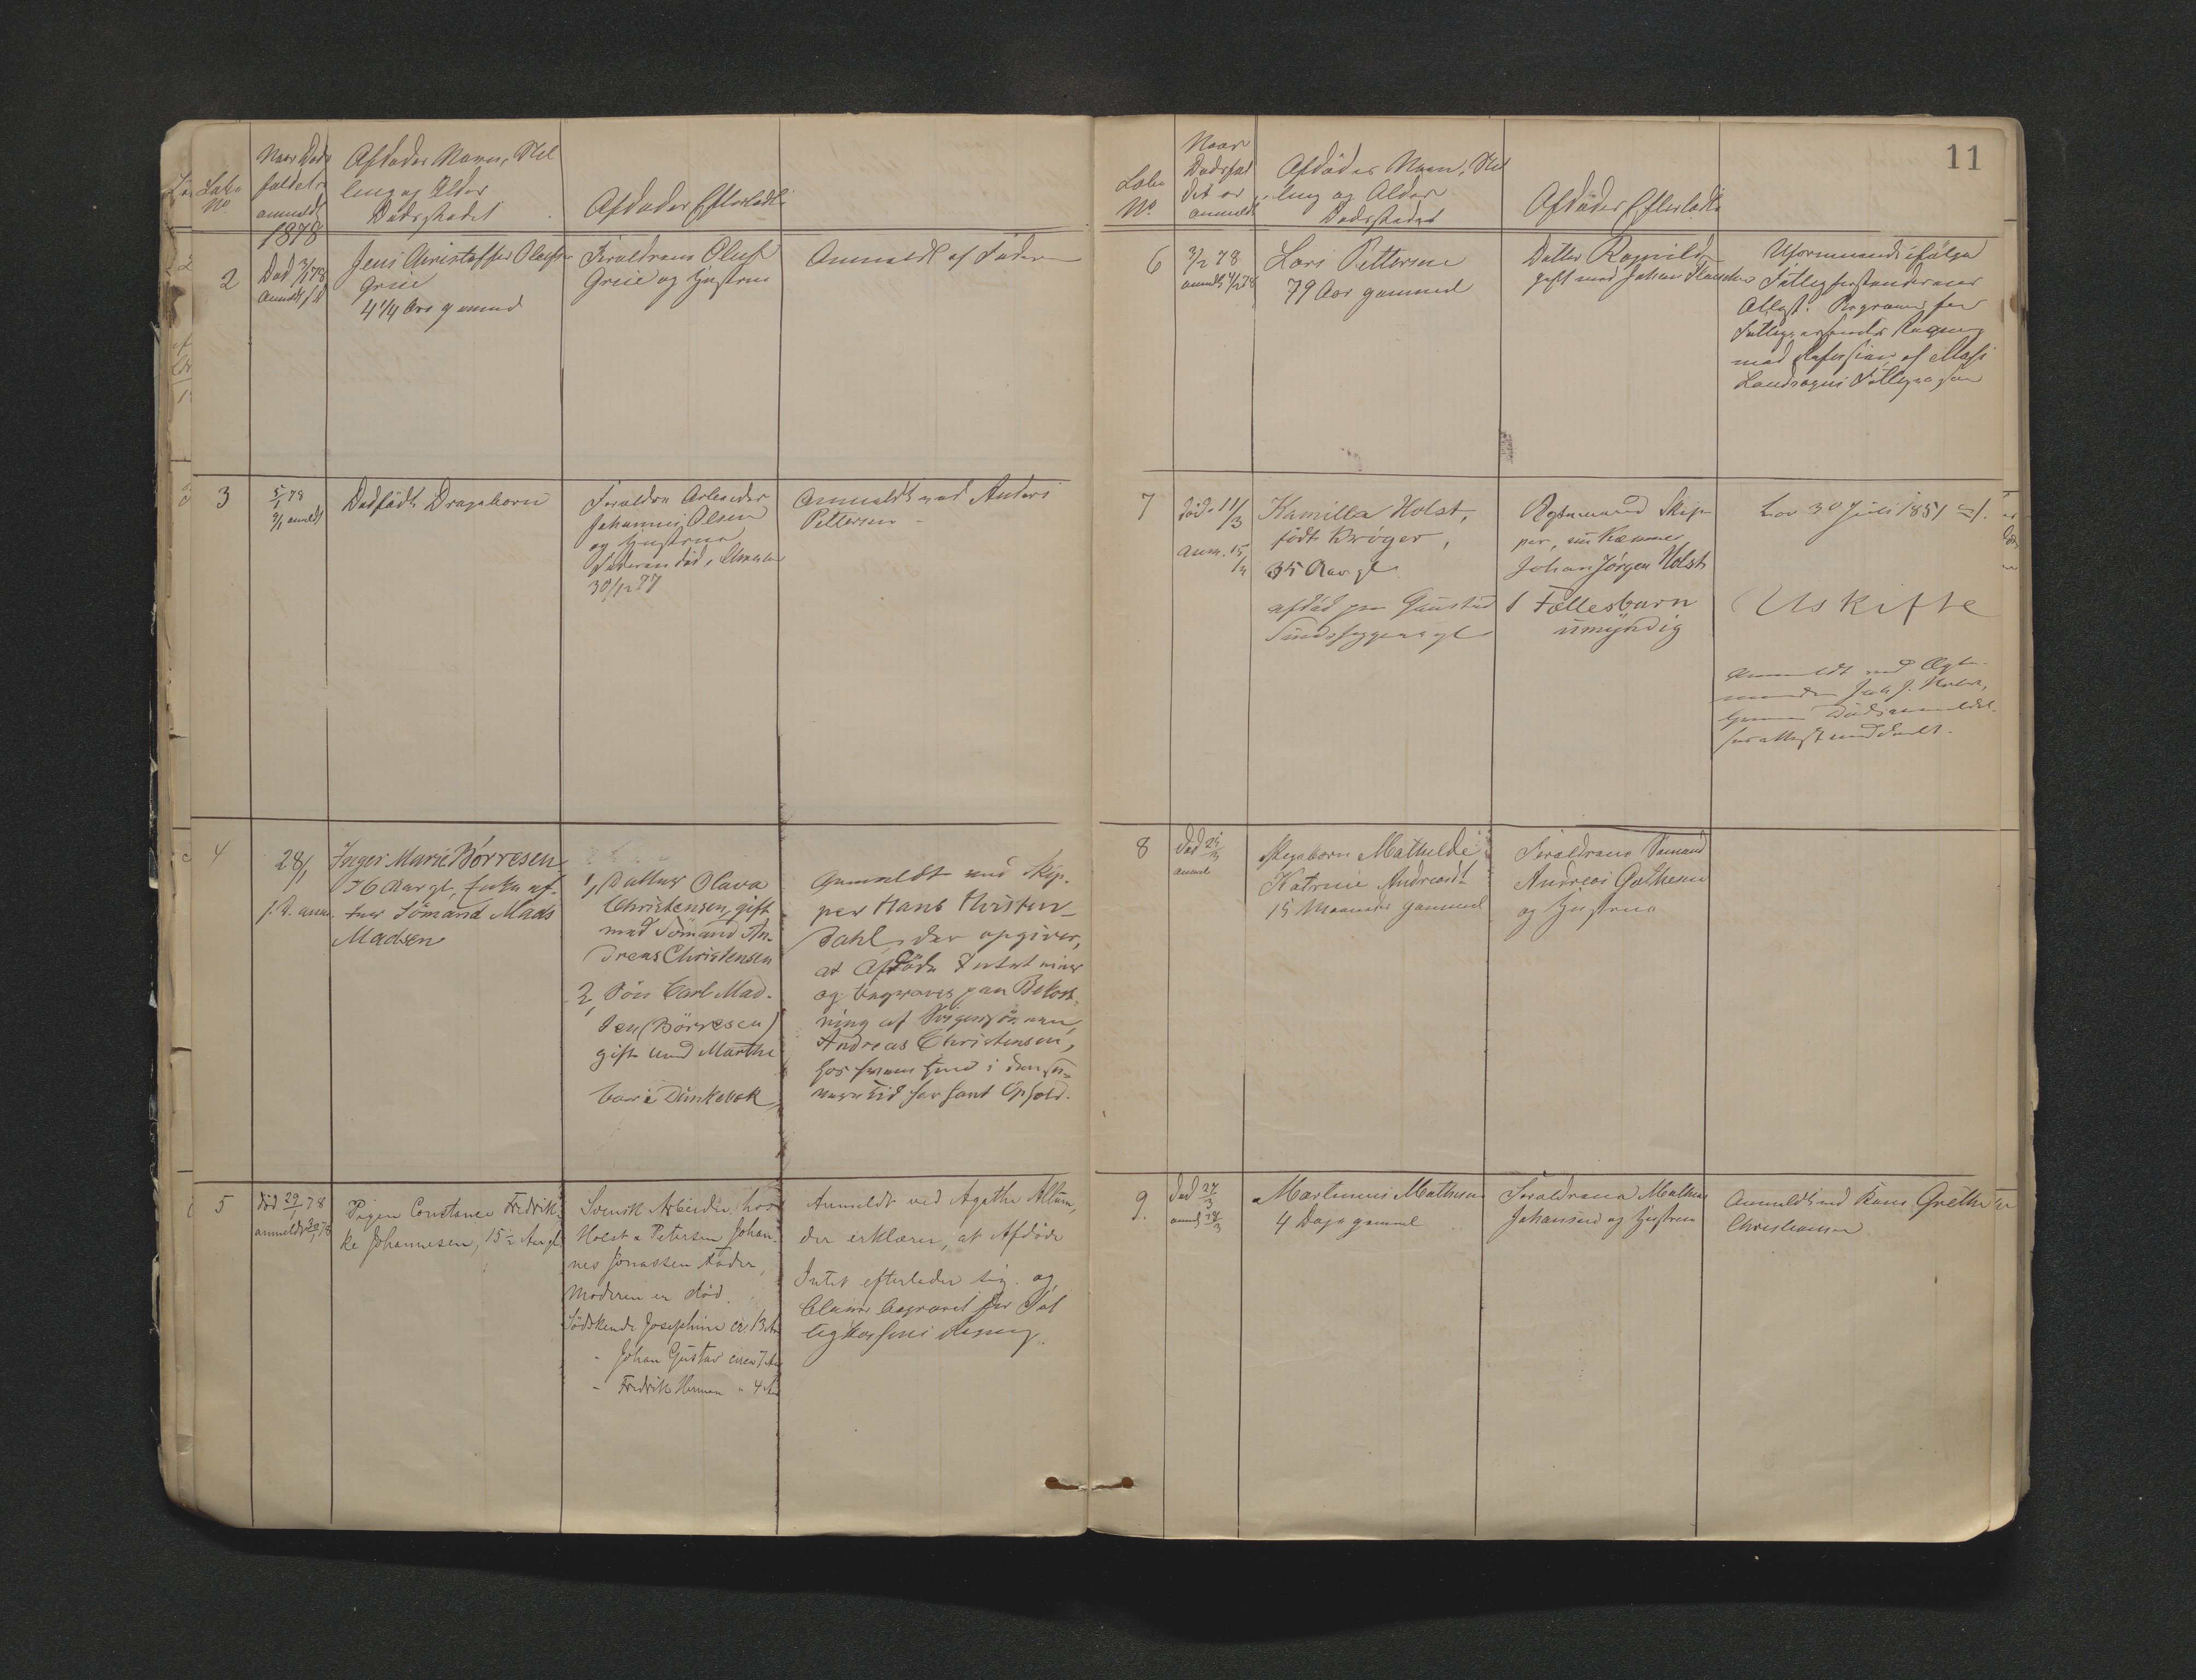 Løbe
No.
Naar Døds
faldet er
anmeldt
Afdødes Navn, Stil
ling og Alder
Dødsstedet
Afdødes Efterladte
1878
2
Død 3/1 78
Anmeldt s. D.
Jens Christoffer Olufsen
Griie
4 1/4 Aar gammel
Forældrene Oluf
Griie og Hustru
Anmeldt af Faderen
3
5/1 78
9/1 anmeldt
Dødfødt Drengebarn
Forældre Arbeider
Johannes Olsen
og Hustrue
Faderen død i
30/12 77
Anmeldt ved Anders
Pettersen
4
28/1
s. D. anm.
Inger Marie Børresen
76 Aar gl., Enke ef-
ter Sömand Mads
Madsen
1, Datter Olava
Christensen, gift
med Sömand An-
dreas Christensen
2, Sön Carl Mad-
sen (Börresen)
gift med Marthe
bor i Dünkebæk
Anmeldt ved Skip-
per Hans Thisten-
dahl, der opgiver,
at Afdøde Intet eier
og begraves paa Bekost-
ning af Svigersönnen,
Andreas Christensen,
hos hvem hun i den se-
nere Tid har havt Ophold.
5
død 29/1 78
anmeldt 30/1 78
Pigen Constance Fredrik-
ke Johannesen, 15 1/2 Aar gl.
Svensk Arbeider hos
Holst & Petersen Johan-
nes Jonassen Fader,
Moderen er död.
Södskende Josephine ca. 13 Aar
- Johan Gustav circa 7 Aar
- Fredrik Herman " 4 Aar
Anmeldt ved Agathe Altum,
der erklærer, at Afdöde
Intet efterlader sig. og
bliver begravet for Fat
tigkassens Regning.
11
Løbe
No.
Naar
Dødsfal
det er
anmeldt
Afdødes Navn, Stil
ling og Alder
Dødsstedet
Afdødes Efterladte
6
3/2 78
anmeldt 4/2 78
Lars Pettersen
79 Aar gammel
Datter Ragnild
gift med Johan
Uformuende ifølge
Fattigforstandernes
Attest. Begraves for
Fattigvæsenets Regning
med Refusion af
Landsogns Fattigvæsen
7
død. 11/3
Anm. 15/4
Kamilla Holst,
født Krøger,
35 Aar gl.
afdød paa Gaustad
Sindssygeasyl
Ægtemand Skip-
per, nu Kæmner
Johan Jørgen Holst
1 Fællesbarn
umyndig
Lov 30 Juli 1851 § 1.
Uskifte
Anmeldt ved Ægte-
manden Joh J. Holst,
hvem Dødsanmeldel-
sesattest meddeelt.
8
Død 25/3
anmel
Pigebarn Mathilde
Katrine Andreasdt
15 Maaneder gammel
Forældrene Sømand
Andreas Mathesen
og Hustrue
9.
Død 27/3
anmeldt 28/3
Martinius Mathesen
4 Dage gammel
Forældrene Mathias
Johansen og Hustrue
Anmeldt ved Kone Grethe
Christiansen